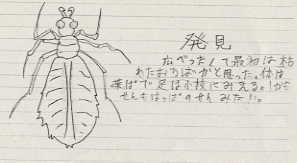 発見
広べったくて最初は枯
れたおちばかと思った。体は
葉ぱで足は小枝にみえる。
せんもはっぱのせんみたい。